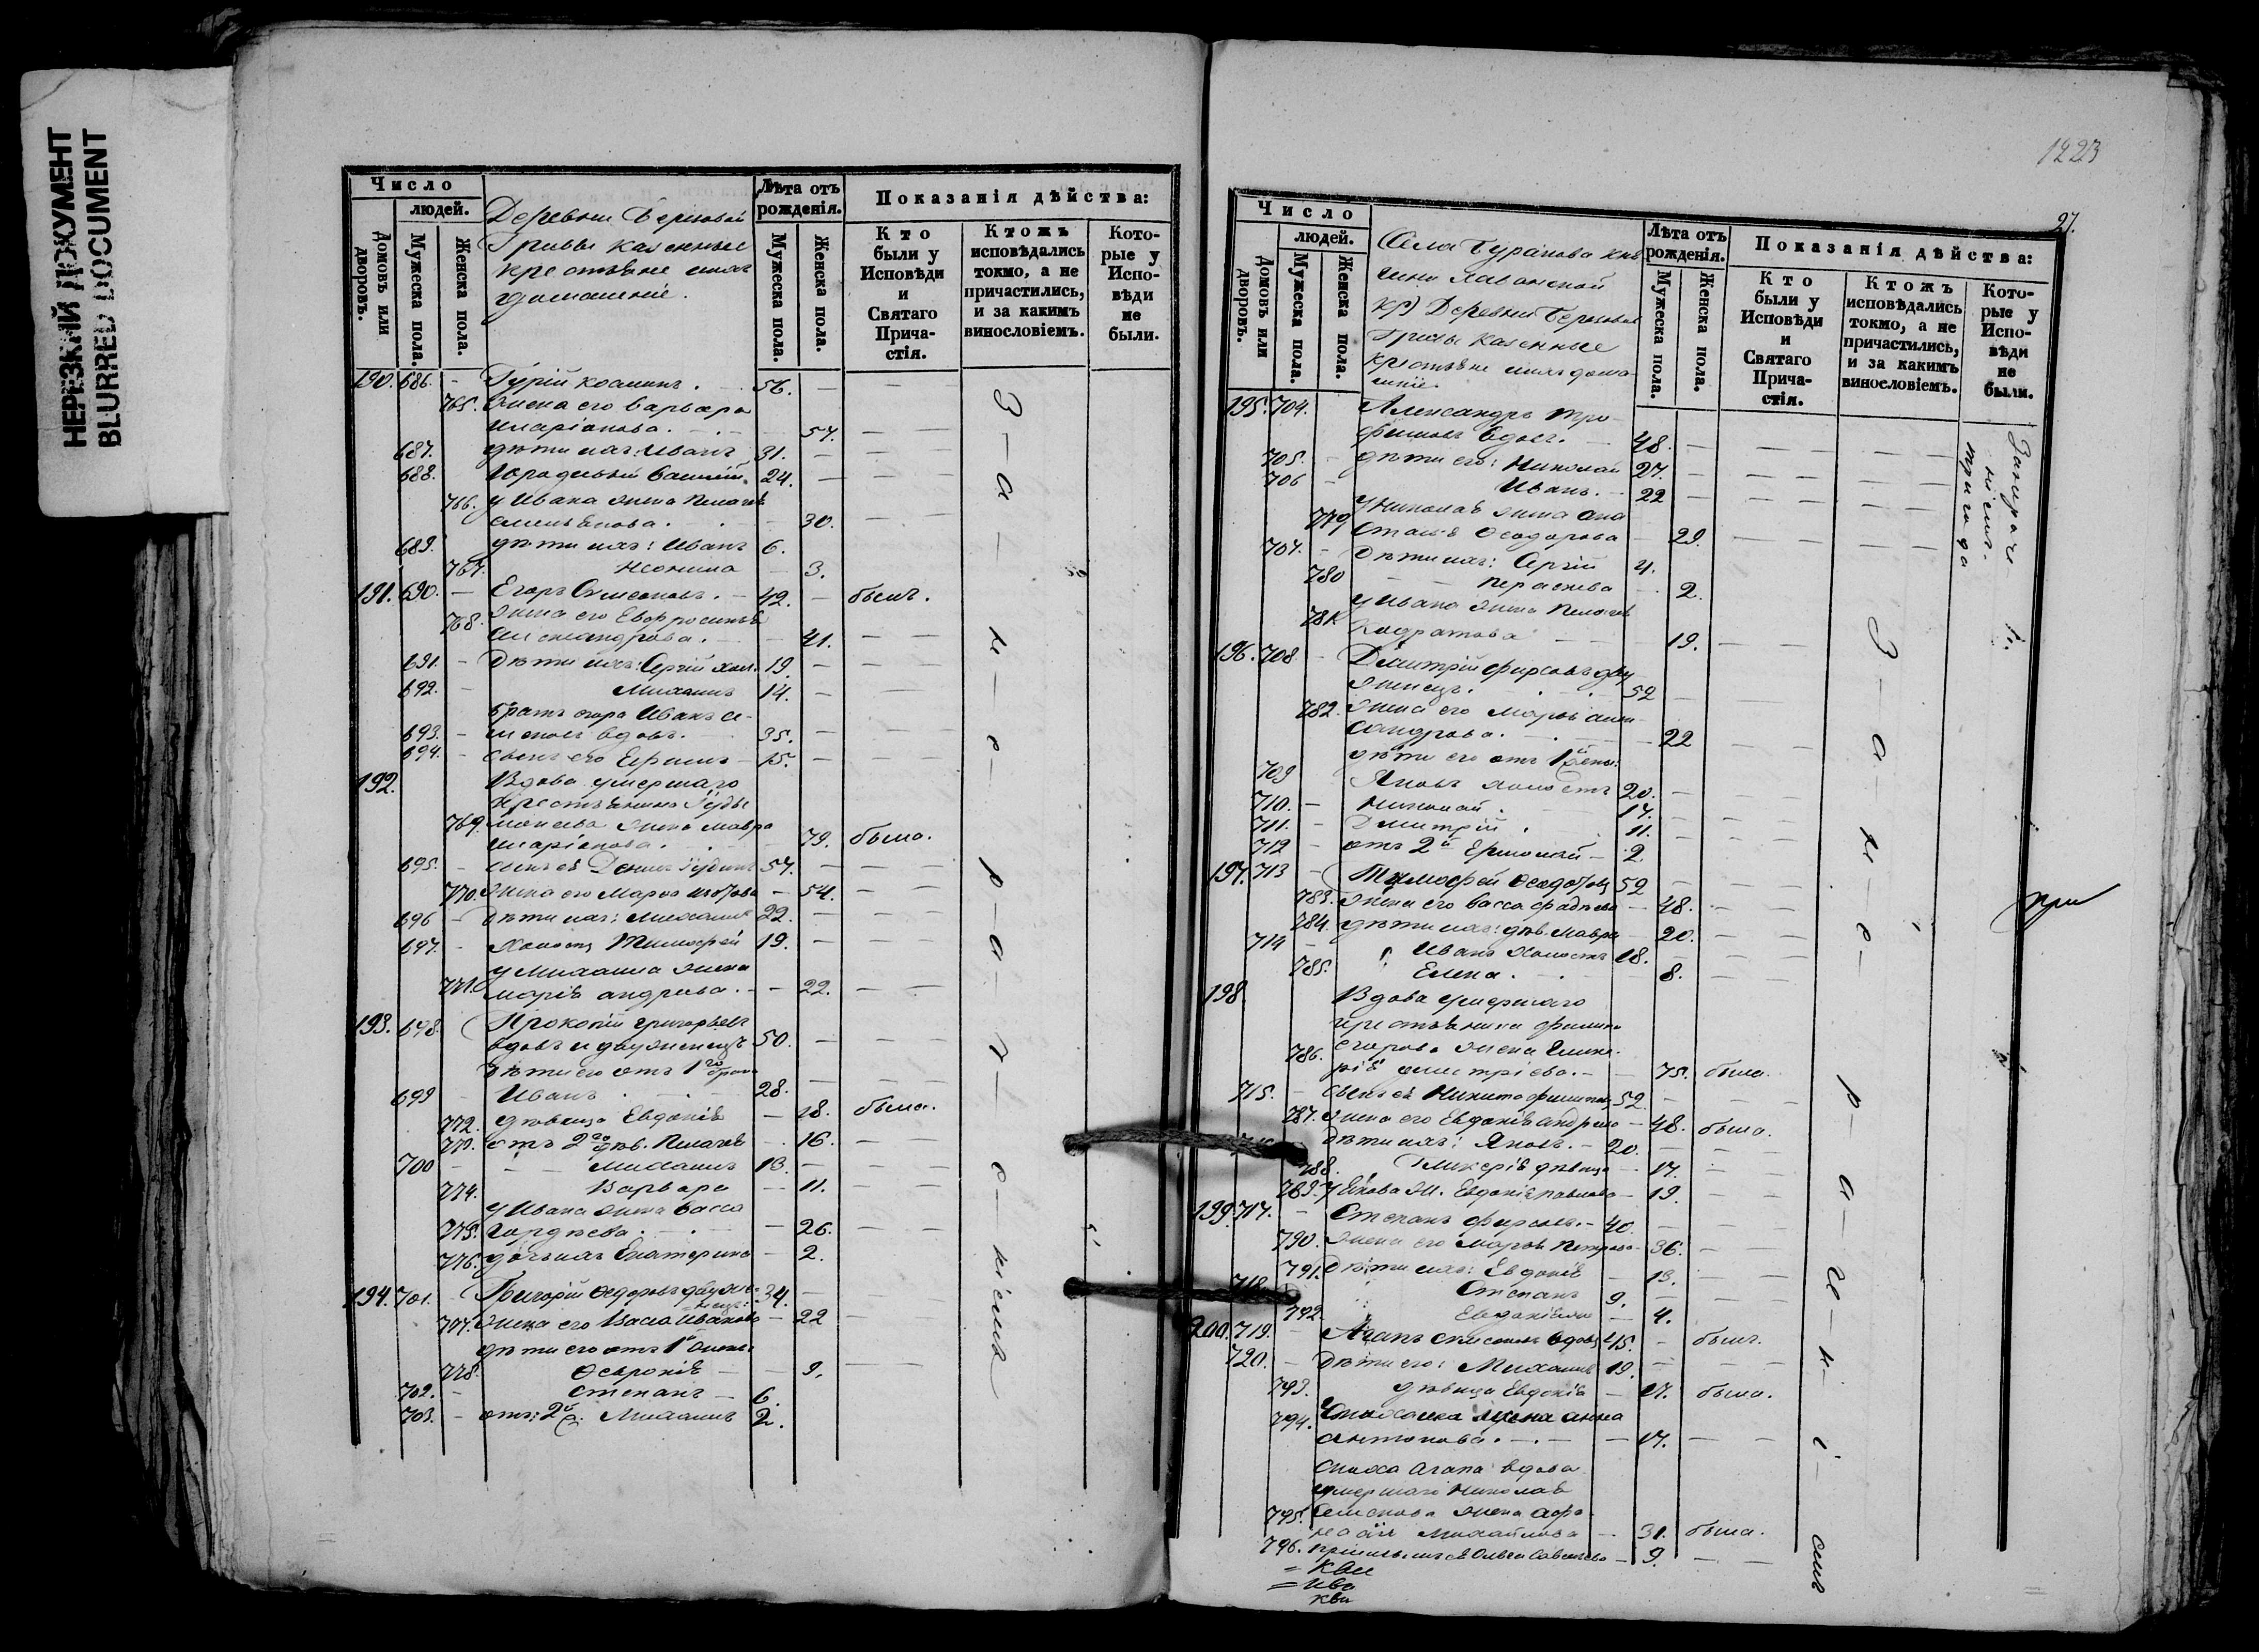 НЕРЕЗКИЙ ДОКУМЕНТ
BLURRED DOCUMENT
Число
людей.
Домовъ или дворовъ.
Мужеска пола.
Женска пола.
Деревни Березовой
Гривы казенные
крестьяне и ихъ
домашніе.
Лѣта отъ рожденія.
Мужеска пола.
Женска пола.
Показанія дѣйства:
Кто были у Исповѣди и Святаго Причастія.
Ктожъ исповѣдались токмо, а не причастились, и за какимъ винословіемъ.
Которые у Исповѣди не были.
190. 686. - Гурій Козминъ. 56.
765. Жена его Варвара
Иларіонова. 57.
687. дѣти ихъ: Иванъ 31.
688. 24.
766. У Ивана жена Пелагія
30.
689. дѣти ихъ: Иванъ 6.
767. 3.
191. 690. - Егоръ Симеоновъ. - 42. - былъ.
768. Жена его Евфросинія
Александрова. 41.
691. - Дѣти ихъ: Сергій хол. 19.
692. - Михаилъ 14.
братъ Егора Иванъ Си-
693. - меоновъ вдовъ. 35.
694. - сынъ его Ефимъ - 15.
192. Вдова умершаго
крестьянина Іуды
769. жена Мавра
Иларіонова. 79. была.
695. - сынъ ея Денисъ Іудинъ 57.
770. Жена его Марѳа - 54.
696 - дѣти ихъ: Михаилъ 22.
697. - холостъ Тимофей 19.
У Михаила жена
771. Марія Андреева. - 22.
193. 698. Прокопій Григорьевъ
вдовъ и двуженецъ 50.
Дѣти его отъ 1го брака
699 - Иванъ 28.
772. дѣвица Евдокія - 18. была.
773. отъ 2го дѣв. Пелагія - 16.
700 - Михаилъ 13.
774. Варвара - 11.
У Ивана жена Васса
775. Гордѣева. - 26.
776. дочь ихъ Екатерина - 2.
194. 701. - Григорій Ѳедоровъ двуже-
нецъ. 34.
777. Жена его Васса Иванова - 22
дѣти его отъ 1й жены:
778. Ѳевронія - 9.
702. - Степанъ - 6.
703. - отъ 2й Михаилъ 2.
З-а н-е-р-а-
1223
27.
Число
людей.
Домовъ или дворовъ.
Мужеска пола.
Женска пола.
Села Буранова
кр) Деревни Березовой
Гривы казенные
крестьяне и ихъ дома-
шніе.
Лѣта отъ рожденія.
Мужеска пола.
Женска пола.
Показанія дѣйства:
Кто были у Исповѣди и Святаго Причастія.
Ктожъ исповѣдались токмо, а не причастились, и за какимъ винословіемъ.
Которые у Исповѣди не были.
195. 704. Александръ Тро-
фимовъ вдовъ. 48.
705. - дѣти его: Николай 27.
706 - Иванъ. - 22
У Николая жена Ана-
779 стасія Ѳеодорова - 29.
707. - Дѣти ихъ: Сергій 4.
780 Параскева 2.
У Ивана жена Пелагія
781 Кодратова 19.
196. 708. - Димитрій Фирсовъ дву
женецъ. 52
782. Жена его Марѳа Алек-
сандрова. 22
дѣти его отъ 1й жены:
709 Яковъ холостъ 20.
710. - Николай. 17.
711. - Дмитрій 11.
712 - отъ 2й Ермолай - 2.
197. 713 - Тимофей Ѳеодотовъ 52
783. Жена его Васса Фадѣева - 48.
784. дѣти ихъ: дѣв. Мавра 20.
714 - Иванъ холостъ 18.
785. Елена. 8.
198. Вдова умершаго
крестьянина Филипа
786. Егорова жена Глике-
рія Дмитріева. - 75. была.
715. - сынъ ея Никита Филиповъ 52
787. Жена его Евдокія Андреева - 48. была.
Дѣти ихъ: Яковъ. - 20.
788. Гликерія дѣвица 17.
789. У Якова ж. Евдокія Павлова - 19.
199. 717. - Степанъ Фирсовъ. - 40.
790. Жена его Марѳа Петрова - 36.
791. Дѣти ихъ: Евдокія - 13.
718. Степанъ 9.
792. Евдокія - 4.
200. 719. - Агапъ Симеоновъ вдовъ 45. - былъ.
720. - Дѣти его: Михаилъ 19.
793. дѣвица Евдокія - 17. была.
794. У Михаила жена Анна
Антонова. - 17.
Сноха Агапа вдова
умершаго Николая
795. Семенова жена
Михайлова - 31. была.
796. Ольга Савельева - 9.
З-а-н-е-р-а-
три года